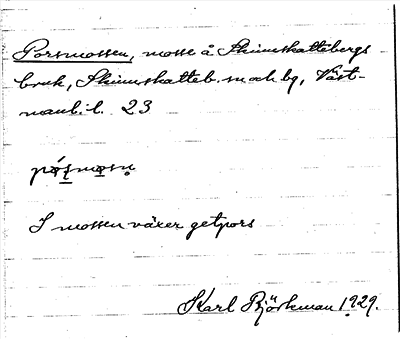 Porsmossen, mosse å Skinnskattebergs
bruk, Skinnskatteb. s. och bg, Väst-
manl. l. 23
I mossen växer getpors
Karl Björkman 1929.